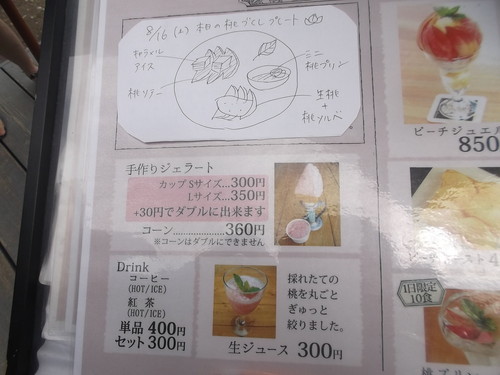 8/16 (土) 本日の桃づくしプレート
キャラメル
アイス
ミニ
桃プリン
桃ソテー
生桃
+
桃ソルベ
手作りジェラート
カップ Sサイズ...300円
Lサイズ...350円
+30円でダブルに出来ます
コーン....................360円
※コーンはダブルにできません
Drink
コーヒー
(HOT/ICE)
紅茶
(HOT/ICE)
単品 400円
セット 300円
採れたての
桃を丸ごと
ぎゅっと
絞りました。
生ジュース 300円
ピーチジュエ
850
スト 4
1日限定
10食
桃プリン